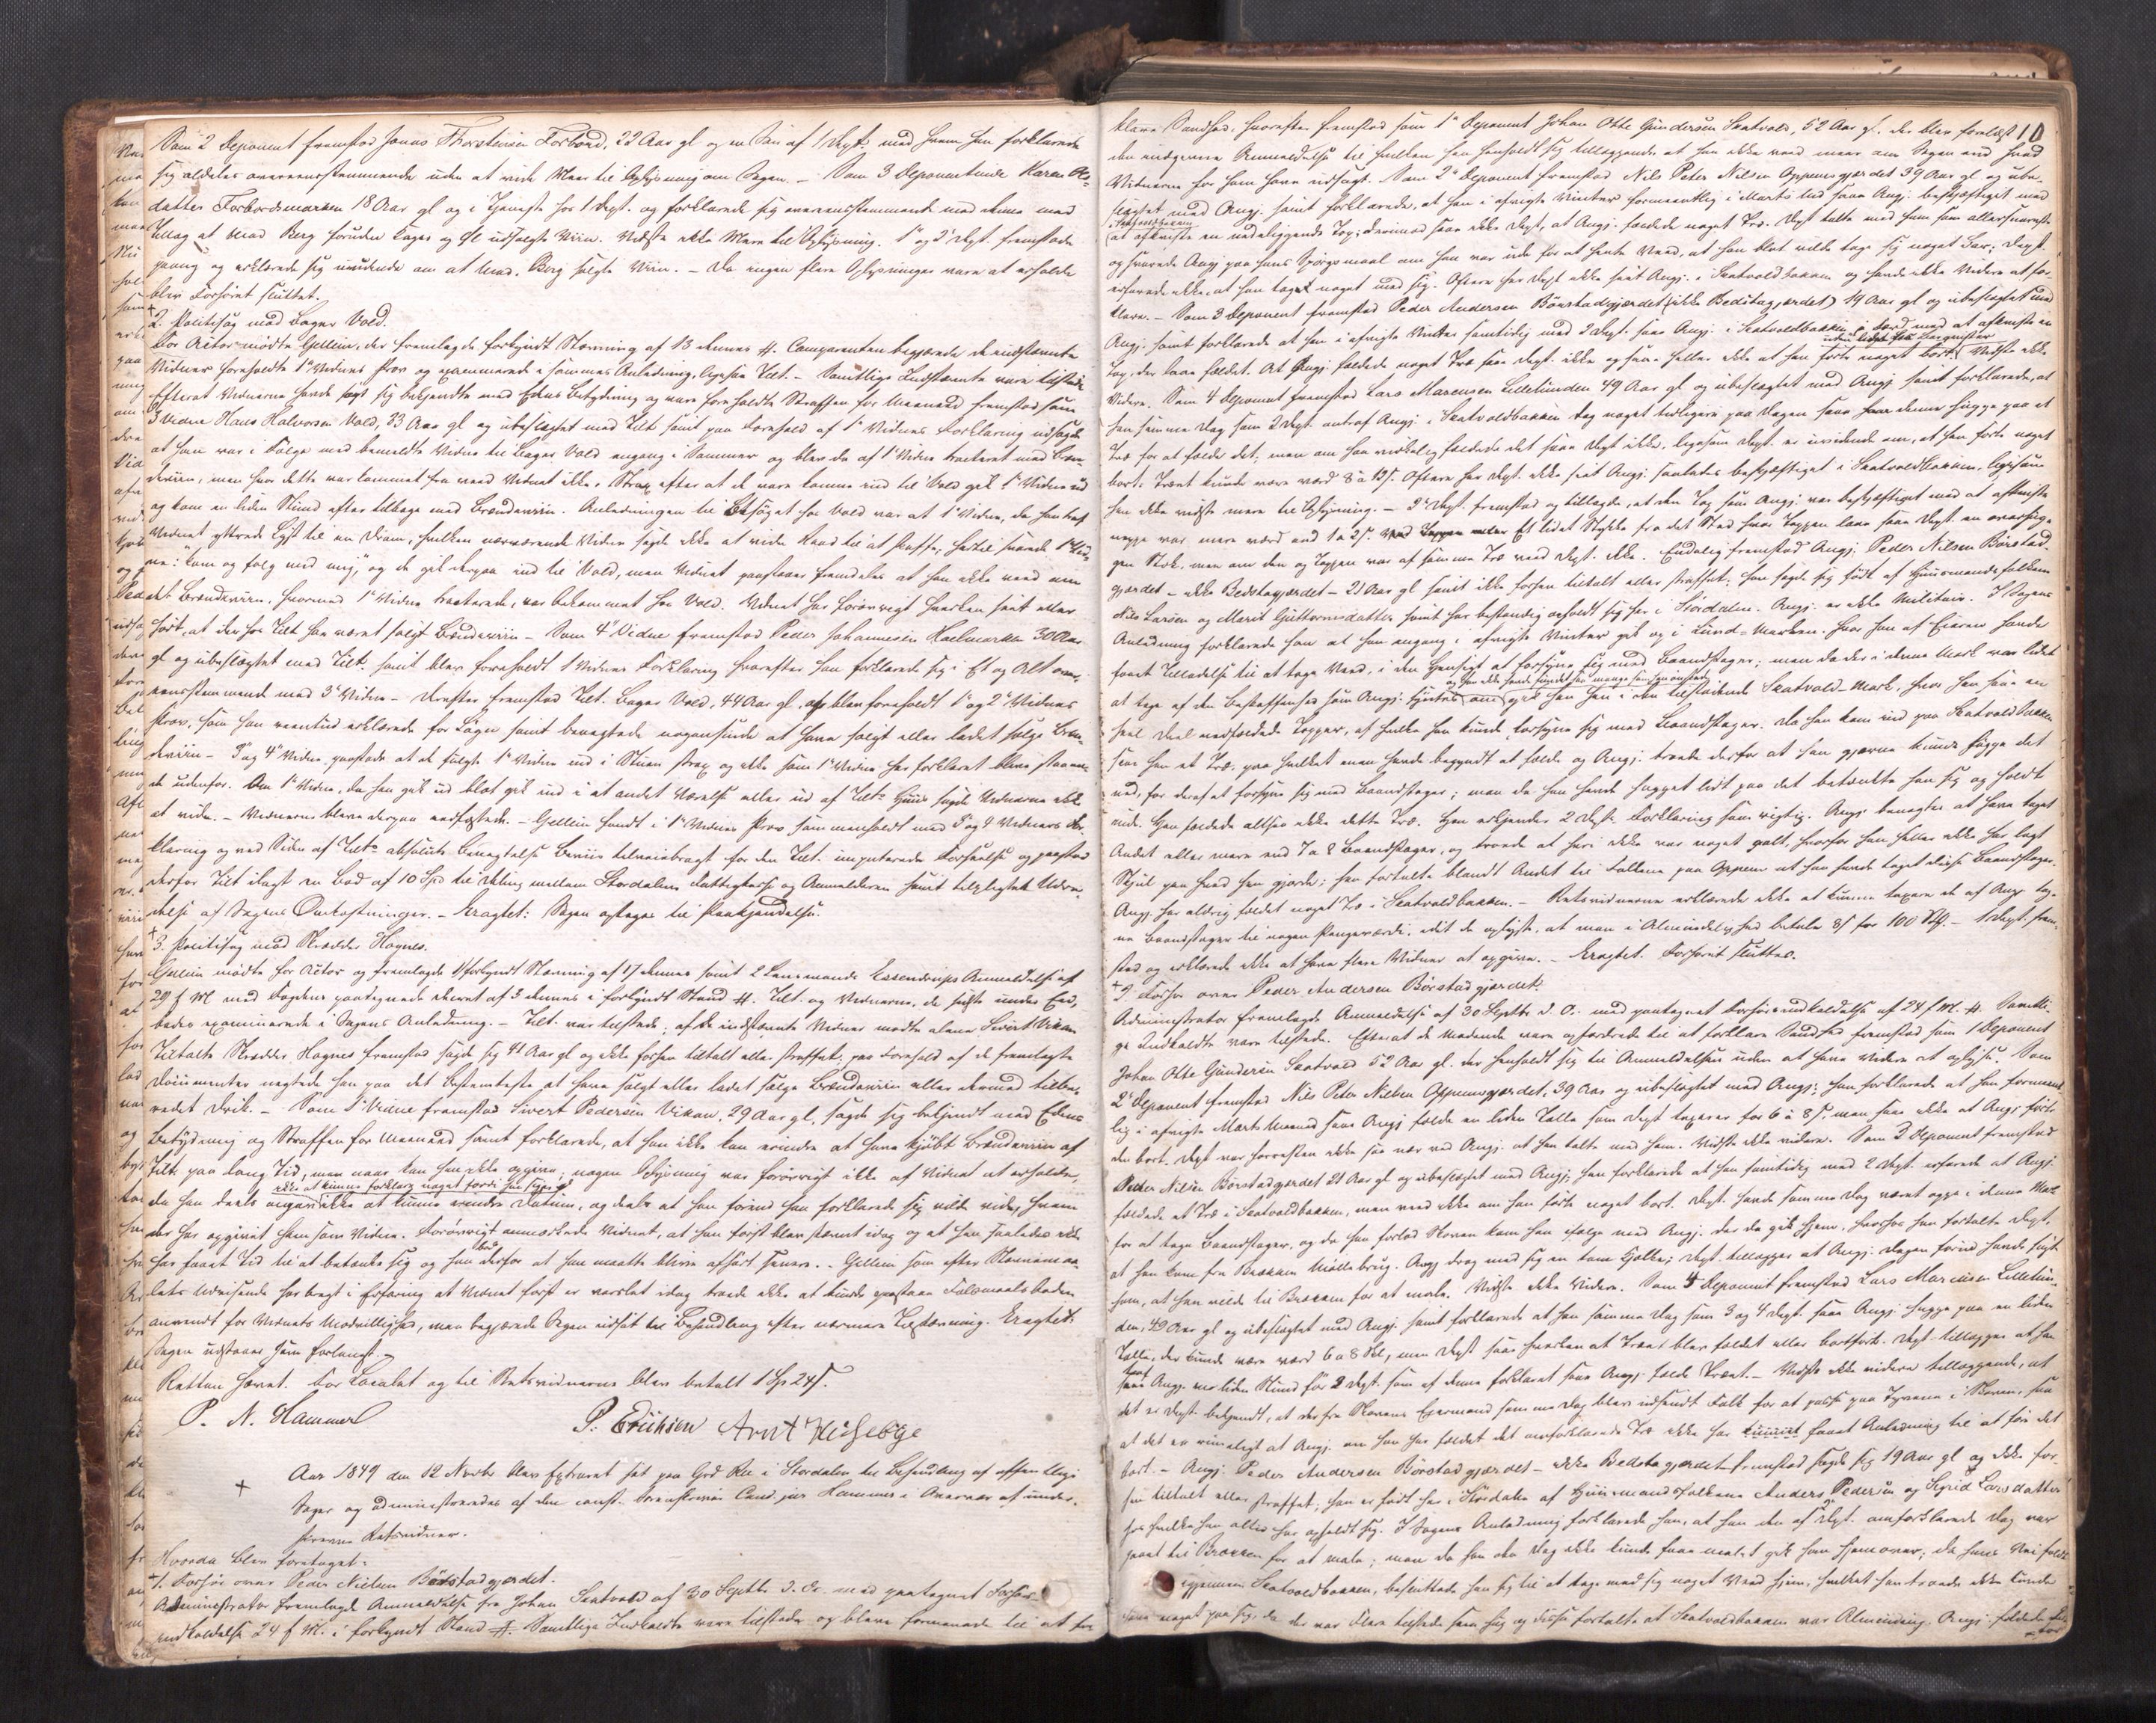 Som 2 Deponent fremstod Jonas Thorstensen Forbord, 22 Aar gl og en Søn af 1 Dept. med hvem han forklarede
sig aldeles overeensstemmende uden at vide Mere til Oplysning om Sagen. – Som 3 Deponentinde Karen
datter Forbordsmarken 18 Aar gl og i Tjeneste hos 1 Dept. og forklarede sig overeensstemmende med denne med
Tillæg at Mad Berg foruden Kager og Øl udsolgte Viin. Vidste ikke Mere til Oplysning. 1 og 2 Dept. fremstode
paany og erklærede sig uvidende om at Mad. Berg solgte Viin. – Da ingen flere Oplysninger vare at erholde
blev Forhøret sluttet.
2. Politisag mod Bager Vold.
For Actor mødte Gellein, der fremlagde forkyndt Stævning af 13 dennes #. Comparenten begjærede de indstævnte
Vidner foreholdte 1 Vidnes Prov og examinerede i sammes Anledning, ligesaa Tilt. – Samtlige Indstævnte vare tilstede
Efterat Vidnerne havde sagt sig bekjendte med Edens Betydning og vare foreholdte Straffen for Meeneed fremstod som
3 Vidne Hans Halvorsen Vold, 33 Aar gl og ubeslægtet med Tilt samt paa Forehold af 1 Vidnes Forklaring udsagde
at han var i Følge med bemeldte Vidne til Bager Vold engang i Sommer og blev da af 1 Vidne tracteret med Bræn-
deviin, men hvor dette var kommet fra veed Vidnet ikke. Strax efter at de vare komne ind til Vold gik 1 Vidne ud
og kom en liden Stund efter tilbage med Brændeviin. Anledningen til Besøget hos Vold var at 1 Vidne, da han traf
Vidnet yttrede Lyst til en Dram, hvilken nærværende Vidne sagde ikke at vide Raad til at skaffe, hertil svarede 1 Vid-
ne: "kom og følg med mig", og de gik derpaa ind til Vold, men Vidnet paastaaer fremdeles at han ikke veed om
det Brændeviin, hvormed 1 Vidne tracterede, var bekommet hos Vold. Vidnet har forøvrigt hverken seet eller
hørt, at der hos Tilt har været solgt Brændeviin – Som 4 Vidne fremstod Peder Johannesen Hoelmarken 30 Aar
gl og ubeslægtet med Tilt. samt blev foreholdt 1 Vidnes Forklaring hvorefter han forklarede sig i Et og Alt over-
eensstemmende med 3 Vidne – Derefter fremstod Tilt. Bager Vold, 44 Aar gl, og blev foreholdt 1 og 2 Vidnes
Prov, som han reentud erklærede for Løgn samt benægtede nogensinde at have solgt eller ladet sælge Bræn-
deviin – 3 og 4 Vidne paastode at de fulgte 1 Vidne ind i Stuen strax og ikke som 1 Vidne har forklaret bleve staaen-
de udenfor. Om 1 Vidne, da han gik ud blot gik ind i et andet Værelse eller ud af Tilts Huus sagde Vidnerne ikke
at vide. – Vidnerne bleve derpaa eedfæstede. – Gellein fandt i 1 Vidnes Prov sammenholdt med 3 og 4 Vidners For-
klaring og ved Siden af Tilts absolute Benægtelse Beviis tilveiebragt for den Tilt. imputerede Forseelse og paastod
derfor Tilt ilagt en Bod af 10 Spd til Deling mellem Stordalens Fattigkasse og Anmelderen samt tilpligtet Udre-
delse af Sagens Omkostninger. – Eragtet: Sagen optages til Paakjendelse.
3. Politisag mod Skrædder Hognes.
Gellein mødte for Actor og fremlagde 1) forkyndt Stævning af 17 dennes samt 2 Lensmands Essendrups Anmeldelse af
29 f M med Fogdens paategnede Decret af 3 dennes i forkyndt Stand #. Tilt. og Vidnerne, de sidste under Eed,
bedes examinerede i Sagens Anledning. – Tilt. var tilstede; af de indstævnte Vidner mødte alene Sivert Vikan.
Tiltalte Skrædder Hognes fremstod sagde sig 41 Aar gl og ikke forhen tiltalt eller straffet; paa Forehold af de fremlagte
Documenter negtede han paa det Bestemteste at have solgt eller ladet sælge Brændeviin eller dermed tilbe-
redet Drik. – Som 1 Vidne fremstod Sivert Pedersen Vikan, 29 Aar gl, sagde sig bekjendt med Edens
Betydning og Straffen for Meeneed samt forklarede, at han ikke kan erindre at have kjøbt Brændeviin af
Tilt. paa lang Tid, men naar kan han ikke opgive; nogen Oplysning var forøvrigt ikke af Vidnet at erholde,
ikke at kunne forklare noget fordi han siger
da han deels angav ikke at kunne erindre Datum, og deels at han førend han forklarede sig vilde vide, hvem
der har opgivet ham som Vidne. Forøvrigt anmærkede Vidnet, at han først blev stævnt idag og at han saaledes ikke
har faaet Tid til at betænke sig og han bad derfor at han maatte blive afhørt senere. – Gellein som efter Stævnema-
lets Udvisende har bragt i Erfaring at Vidnet først er varslet idag troede ikke at kunde paastaae Falsmaalsboden
anvendt for Vidnets Modvillighed, men begjærede Sagen udsat til Behandling efter nærmere Tægtedærning. Eragtet:
Sagen udstaaer som forlangt. –
Retten hævet. For Localet og til Retsvidnerne blev betalt 1 Sp 24 ß.
P. N. Hammer
P. Erichsen Arnt Helsebye
Aar 1849 den 12 Novbr blev Extraret sat paa Grd Ree i Stordalen til Behandling af offentlige
Sager og administreredes af den const. Sorenskriver Cand. jur. Hammer i Overvær af under-
skrevne Retsvidner.
Hvorda blev foretaget:
1. Forhør over Peder Nielsen Børstadgjerdet.
Administrator fremlagde Anmeldelse fra Johan Skatvold af 30 Septbr d. Ar. med paategnet Forhørs-
indkaldelse 24 f M. i forkyndt Stand #. Samtlige Indkaldte vare tilstede og bleve formanede til at for-
10
klare Sandhed, hvorefter fremstod som 1 Deponent Johan Otte Gundersen Skatvold, 52 Aar gl. der blev forelæst
den indgivne Anmeldelse til hvilken han henholdt sig tillæggende at han ikke veed meer om Sagen end hvad
Vidnerne for ham have udsagt. Som 2 Deponent fremstod Nils Peter Nilsen Oppemsgjerdet 39 Aar gl og ube-
slægtet med Angj. samt forklarede, at han i afvigte Vinter formeentlig i Marts Md saae Angj. beskjæftiget med
i Skatvoldbakken
at afkviste en nedliggende Top; derimod saae ikke Dept, at Angj. fældede noget Træ. Dept talte med ham som allersnarest
og svarede Angj paa hans Spørgsmaal om han var ude for at hente Veed, at han blot vilde tage sig noget Bar; Dept
erfarede ikke, at han tog noget med sig. Oftere har Dept ikke seet Angj. i Skatvoldbakken og havde ikke Videre at for-
klare. – Som 3 Deponent fremstod Peder Andersen Børstadgjerdet (ikke Bedstagjerdet) 19 Aar gl og ubeslægtet med
Angj. samt forklarede at han i afvigte Vinter samtidig med 2 Dept. saae Angj. i Skatvoldbakken i Færd med at afkviste en
uden
Top, der laae fældet. At Angj. fældede noget Træ saae Dept. ikke og saae heller ikke at han førte noget bort. Vidste ikke
Videre. Som 4 Deponent fremstod Lars Marcusen Lilletunden 49 Aar gl og ubeslægtet med Angj samt forklarede, at
han samme Dag som 2 Dept. antraf Angj. i Skatvoldbakken dog noget tidligere paa Dagen saae denne hugge paa et
Træ for at fælde det; men om han virkelig fældede det saae Dept ikke, ligesom Dept. er uvidende om, at han førte noget
bort. Træet kunde være værd 8 à 12 ß. Oftere har Dept. ikke seet Angj. saaledes beskjæftiget i Skatvoldbakken, ligesom
han ikke vidste mere til Oplysning. – 2 Dept. fremstod og tillagde, at den Top som Angj. var beskjæftiget med at afkviste
neppe var mere værd end 1 a 2 ß. Et lidet Stykke fra det Sted hvor Toppen laae saae Dept. en
gen Stok, men om den og Toppen var af samme Træ veed Dept. ikke. Endelig fremstod Angj. Peder Nilsen Børstad-
gjerdet – ikke Bedstagjerdet – 21 Aar gl samt ikke forhen tiltalt eller straffet; han sagde sig født af Huusmandsfolkene
Nils Larsen og Marit Guttormsdatter samt har bestandig opholdt sig her i Stordalen. Angj. er ikke Militair. I Sagens
Anledning forklarede han at han engang i afvigte Vinter gik op i Lund-Marken, hvor han af Eieren havde
faaet Tilladelse til at tage Veed, i den Hensigt at forsyne sig med Baandstager; men da der i denne Mark var lidet
og han ikke havde fundet saa mange som han ønskede
at tage af den Beskaffenhed som Angj. gik han hen i den tilstødende Skatvold-Mark, hvor han saae en
heel Deel nedfældede Topper, af hvilke han kunde forsyne sig med Baandstager. Da han kom ind paa Skatvoldbakken
saae han et Træ, paa hvilket man havde begyndt at fælde og Angj. troede derfor at han gjerne kunde hugge det
ned, for deraf at forsyne sig med Baandstager; men da han havde hugget lidt paa det betænkte han sig og holdt
inde. Han fældede altsaa ikke dette Træ. Han erkjender 2 Dept. Forklaring som rigtig. Angj benægter at have taget
Andet eller mere end 7 a 8 Baandstager, og troede at heri ikke var noget galt, hvorfor han heller ikke har lagt
Skjul paa hvad han gjorde; han fortalte blandt Andet til Folkene paa Oppem at han havde taget disse Baandstager.
Angj. har aldrig fældet noget Træ i Skatvoldbakken. – Retsvidnerne erklærede ikke at kunne taxere de af Angj tag-
ne Baandstager til nogen Pengeværdi, idet de oplyste, at man i Almindelighed betale 8 ß for 100 Stk. – 1 Dept. frem-
stod og erklærede ikke at have flere Vidner at opgive. – Eragtet. Forhøret sluttes.
2. Forhør over Peder Andersen Børstadgjerdet.
Administrator fremlagde Anmeldelse af 30 Septbr d. A. med paategnet Forhørsindkaldelse af 24 f M. #. Samtli-
ge Indkaldte vare tilstede. Efterat de Mødende vare opfordrede til at forklare Sandhed fremstod som 1 Deponent
Johan Otte Gundersen Skatvold 52 Aar gl. der henholdt sig til Anmeldelsen uden at have videre at oplyse. Som
2 Deponent fremstod Nils Peter Nielsen Oppemsgjerdet, 39 Aar og ubeslægtet med Angj; han forklarede at han forment-
lig i afvigte Marts Maaned saae Angj fælde en liden Tolle som Dept taxerer for 6 à 8 ß, men saae ikke at Angj førte
den bort. Dept var forresten ikke saa nær ved Angj. at han talte med ham. Vidste ikke videre. Som 3 Deponent fremstod
Peder Nilsen Børstadgjerdet 21 Aar gl og ubeslægtet med Angj; han forklarede at han samtidig med 2 Dept. erfarede at Angj.
fældede et Træ i Skatvoldbakken, men veed ikke om han førte noget bort. Dept. havde samme Dag været oppe i denne Mark
for at tage Baandstager, og da han forlod Skoven kom han ifølge med Angj. der da gik hjem, hvorhos han fortalte Dept,
at han kom fra Brækken Møllebrug. Angj. drog med sig en tom Kjelke; Dept. tillægger at Angj. Dagen forud havde sagt
ham, at han vilde til Brækken for at male. Vidste ikke Videre. Som 4 Deponent fremstod Lars Marcusen Lilletun-
den, 49 Aar gl og ubeslægtet med Angj. samt forklarede at han samme Dag som 3 og 4 Dept. saae Angj hugge paa en liden
Tolle, der kunde være værd 6 a 8 Skl, men Dept saae hverken at Træet blev fældet eller bortført. Dept. tillægger at han
saae Angj. en liden Stund før 2 Dept. som af denne forklaret saae Angj. fælde Træet. – Vidste ikke videre tilleggende, at
det er Dept. bekjendt, at der fra Skovens Eiermænd samme Dag blev udsendt Folk for at passe paa Tyvene i Skoven, saa
at det er rimeligt at Angj. om han har fældet det omforklarede Træ ikke har faaet Anledning til at føre det
bort. – Angj. Peder Andersen Børstadgjerdet – ikke Bedstagjerdet fremstod sagde sig 19 Aar gl og ikke for-
hen tiltalt eller straffet; han er født her i Stordalen af Huusmandsfolkene Anders Pedersen og Sigrid Larsdatter
hos hvilke han altid har opholdt sig. I Sagens Anledning forklarede han, at han den af Dept. omforklarede Dag var
reist til Brækken for at male; men da han den Dag ikke kunde faae malet gik han hjemover; da hans Vei faldt
igjennem Skatvoldbakken, besluttede han sig til at tage med sig noget Veed hjem, hvilket han troede ikke kunde
have noget paa sig, da der var Flere tilstede som hug og disse fortalte at Skatvoldbakken var Almeening. Angj. fældede